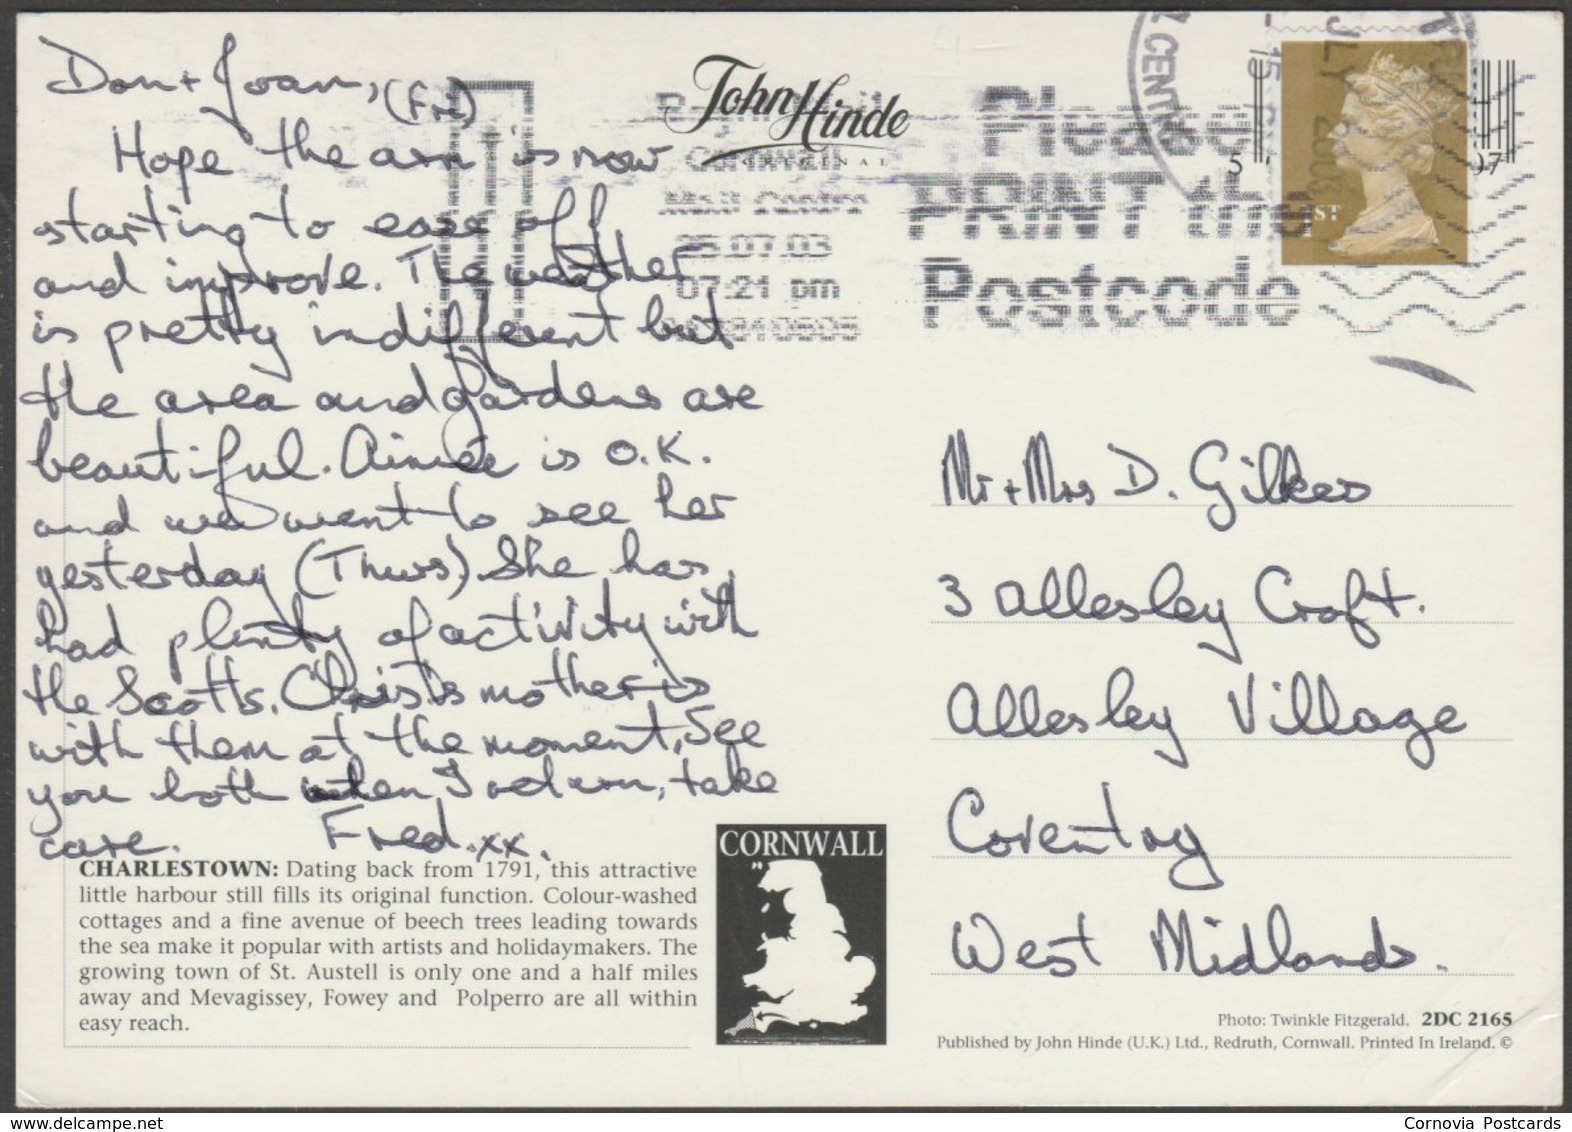 Don + Joan, (Fri)
Hope the arm is now
starting to ease off
and improve. The weather
is pretty indifferent but
the area and gardens are
beautiful. Aimée is O.K.
and we went to see her
yesterday (Thurs). She has
had plenty of activity with
the Scotts. Chris's mother is
with them at the moment, See
you both when I return, take
care. Fred. xx.
CHARLESTOWN: Dating back from 1791, this attractive
little harbour still fills its original function. Colour-washed
cottages and a fine avenue of beech trees leading towards
the sea make it popular with artists and holidaymakers. The
growing town of St. Austell is only one and a half miles
away and Mevagissey, Fowey and Polperro are all within
easy reach.
CORNWALL
John Hinde
ORIGINAL
Cornwall
Mail Centre
25.07.03
07:21 pm
Please
PRINT the
Postcode
CENTRE
JLY
1ST
Mr + Mrs D. Gilkes
3 Allesley Croft.
Allesley Village
Coventry
West Midlands.
Photo: Twinkle Fitzgerald. 2DC 2165
Published by John Hinde (U.K.) Ltd., Redruth, Cornwall. Printed In Ireland. ©
Cornovia Postcards